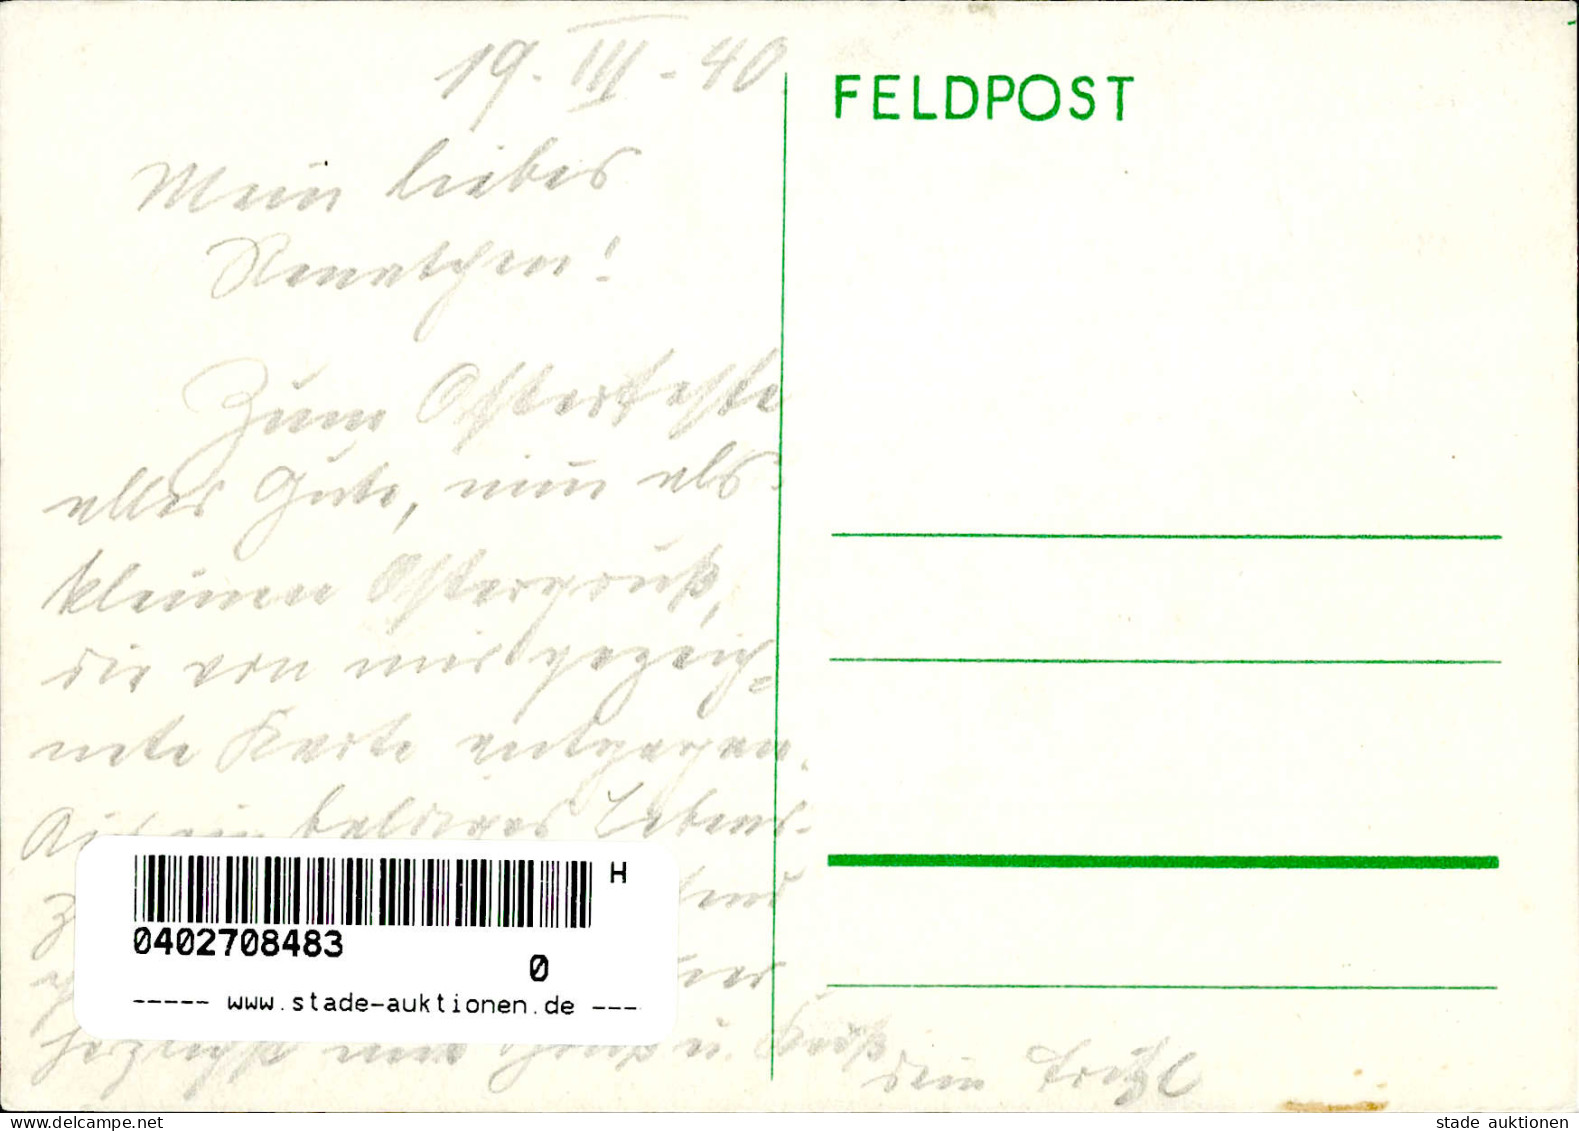 19. III. 40.
Mein liebes
Renatchen!
Zum Osterfeste
alles Gute, nimm als
kleinen Ostergruß,
die von mir gezeich=
nete Karte entgegen.
baldiges Lebens-
herzlichst mit Gruß u. Kuß
dein Fritzl
FELDPOST
H
0402708483
0
----- www.stade-auktionen.de ---
delcampe.net
stade auktionen